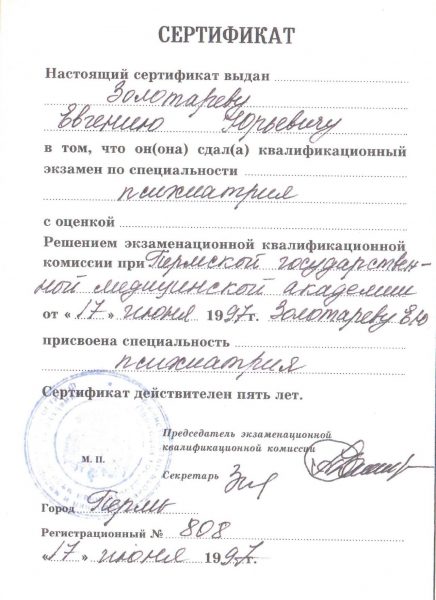 СЕРТИФИКАТ
Настоящий сертификат выдан
Золотареву
Евгению Юрьевичу
в том, что он(она) сдал(а) квалификационный
экзамен по специальности
психиатрия
с оценкой
Решением экзаменационной квалификационной
комиссии при Пермской государствен-
ной медицинской академии
от «17» июня 1997г. Золотареву ЕЮ
присвоена специальность
психиатрия
Сертификат действителен пять лет.
Председатель экзаменационной
квалификационной комиссии
М. П.
Секретарь
Город Пермь
Регистрационный № 808
«17» июня 1997г.